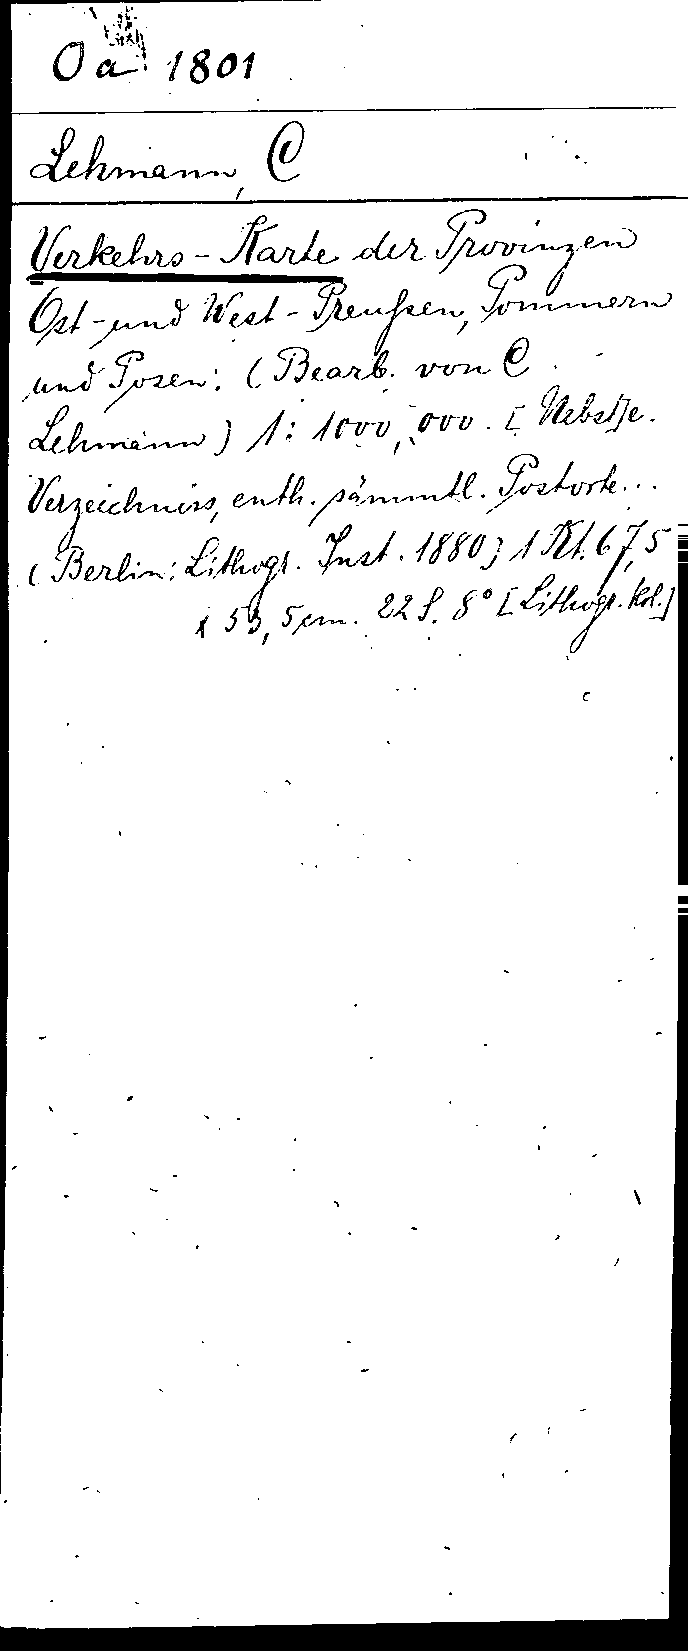 Oa 1801
Lehmann, C
Verkehrs-Karte der Provinzen
Ost- und West-Preußen, Pommern
und Posen: (Bearb. von C
Lehmann) 1:1000,000. [Nebst]e.
Verzeichniss, enth. sämmtl. Postorte...
(Berlin: Lithogr. Inst. 1880) 1 Kt. 67,5
x 53,5 cm. 22 S. 8° [Lithogr. kol.]